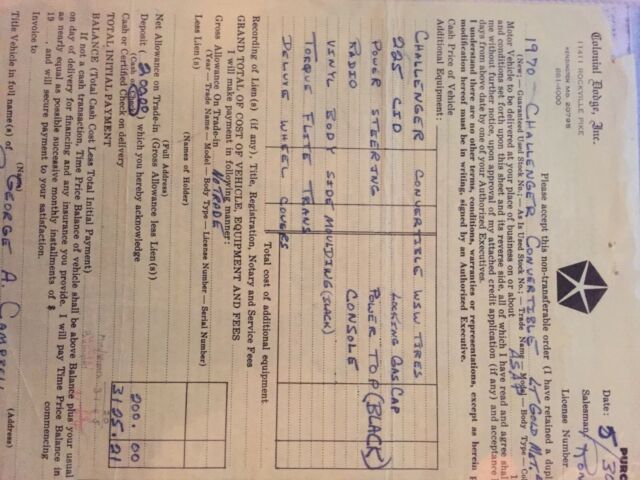 Colonial Dodge, Inc.
11411 ROCKVILLE PIKE
KENSINGTON MD. 20795
881-4000
Date: 5/30
Salesman Tom
License Number
Please accept this non-transferable order (I have retained a dupl
1970 - CHALLENGER CONVERTIBLE LT GOLD MET.
(New; — Guaranteed Used Stock No.; — As Is Used Stock No.; — Trade Name — Model — Body Type — Co
Motor Vehicle to be delivered at your place of business on or about ASAP
and conditions set forth upon this sheet and its reverse side, all of which I have read and agree shal
me without further notice, upon approval of my attached credit application (if any) and acceptance
days from above date by one of your Authorized Executives.
I understand there are no other terms, conditions, warranties or representations, except as herein p
modification hereof must be in writing, signed by an Authorized Executive.
Cash Price of Vehicle
Additional Equipment:
CHALLENGER CONVERTIBLE WSW TIRES
225 CID LOCKING GAS CAP
POWER STEERING POWER TOP (BLACK)
RADIO CONSOLE
VINYL BODY SIDE MOULDING (BLACK)
TORQUE FLITE TRANS
DELUXE WHEEL COVERS
Total cost of additional equipment
Recording of Lien(s) (if any), Title, Registration, Notary and Service Fees
GRAND TOTAL OF COST OF VEHICLE, EQUIPMENT AND FEES
I will make payment in following manner:
Gross Allowance On Trade-in NO TRADE
(Year — Trade Name — Model — Body Type — License Number — Serial Number)
Less Lien(s)
(Names of Holder)
(Full Address)
Net Allowance on Trade-in (Gross Allowance less Lien(s))
Deposit (200.00) which you hereby acknowledge 200.00
(Cash or Check)
Cash or Certified Check on delivery 3125.21
TOTAL INITIAL PAYMENT
BALANCE (Total Cash Cost Less Total Initial Payment)
If not a cash transaction, Time Price Balance of vehicle shall be above Balance plus your usual
on day of delivery for financing and any insurance you provide. I will pay Time Price Balance in
as nearly equal as possible successive monthly installments of $ commencing
19 . and will secure payment to your satisfaction.
Invoice to
(Name) (Address)
Title Vehicle in full name(s) of GEORGE A. CAMPBELL